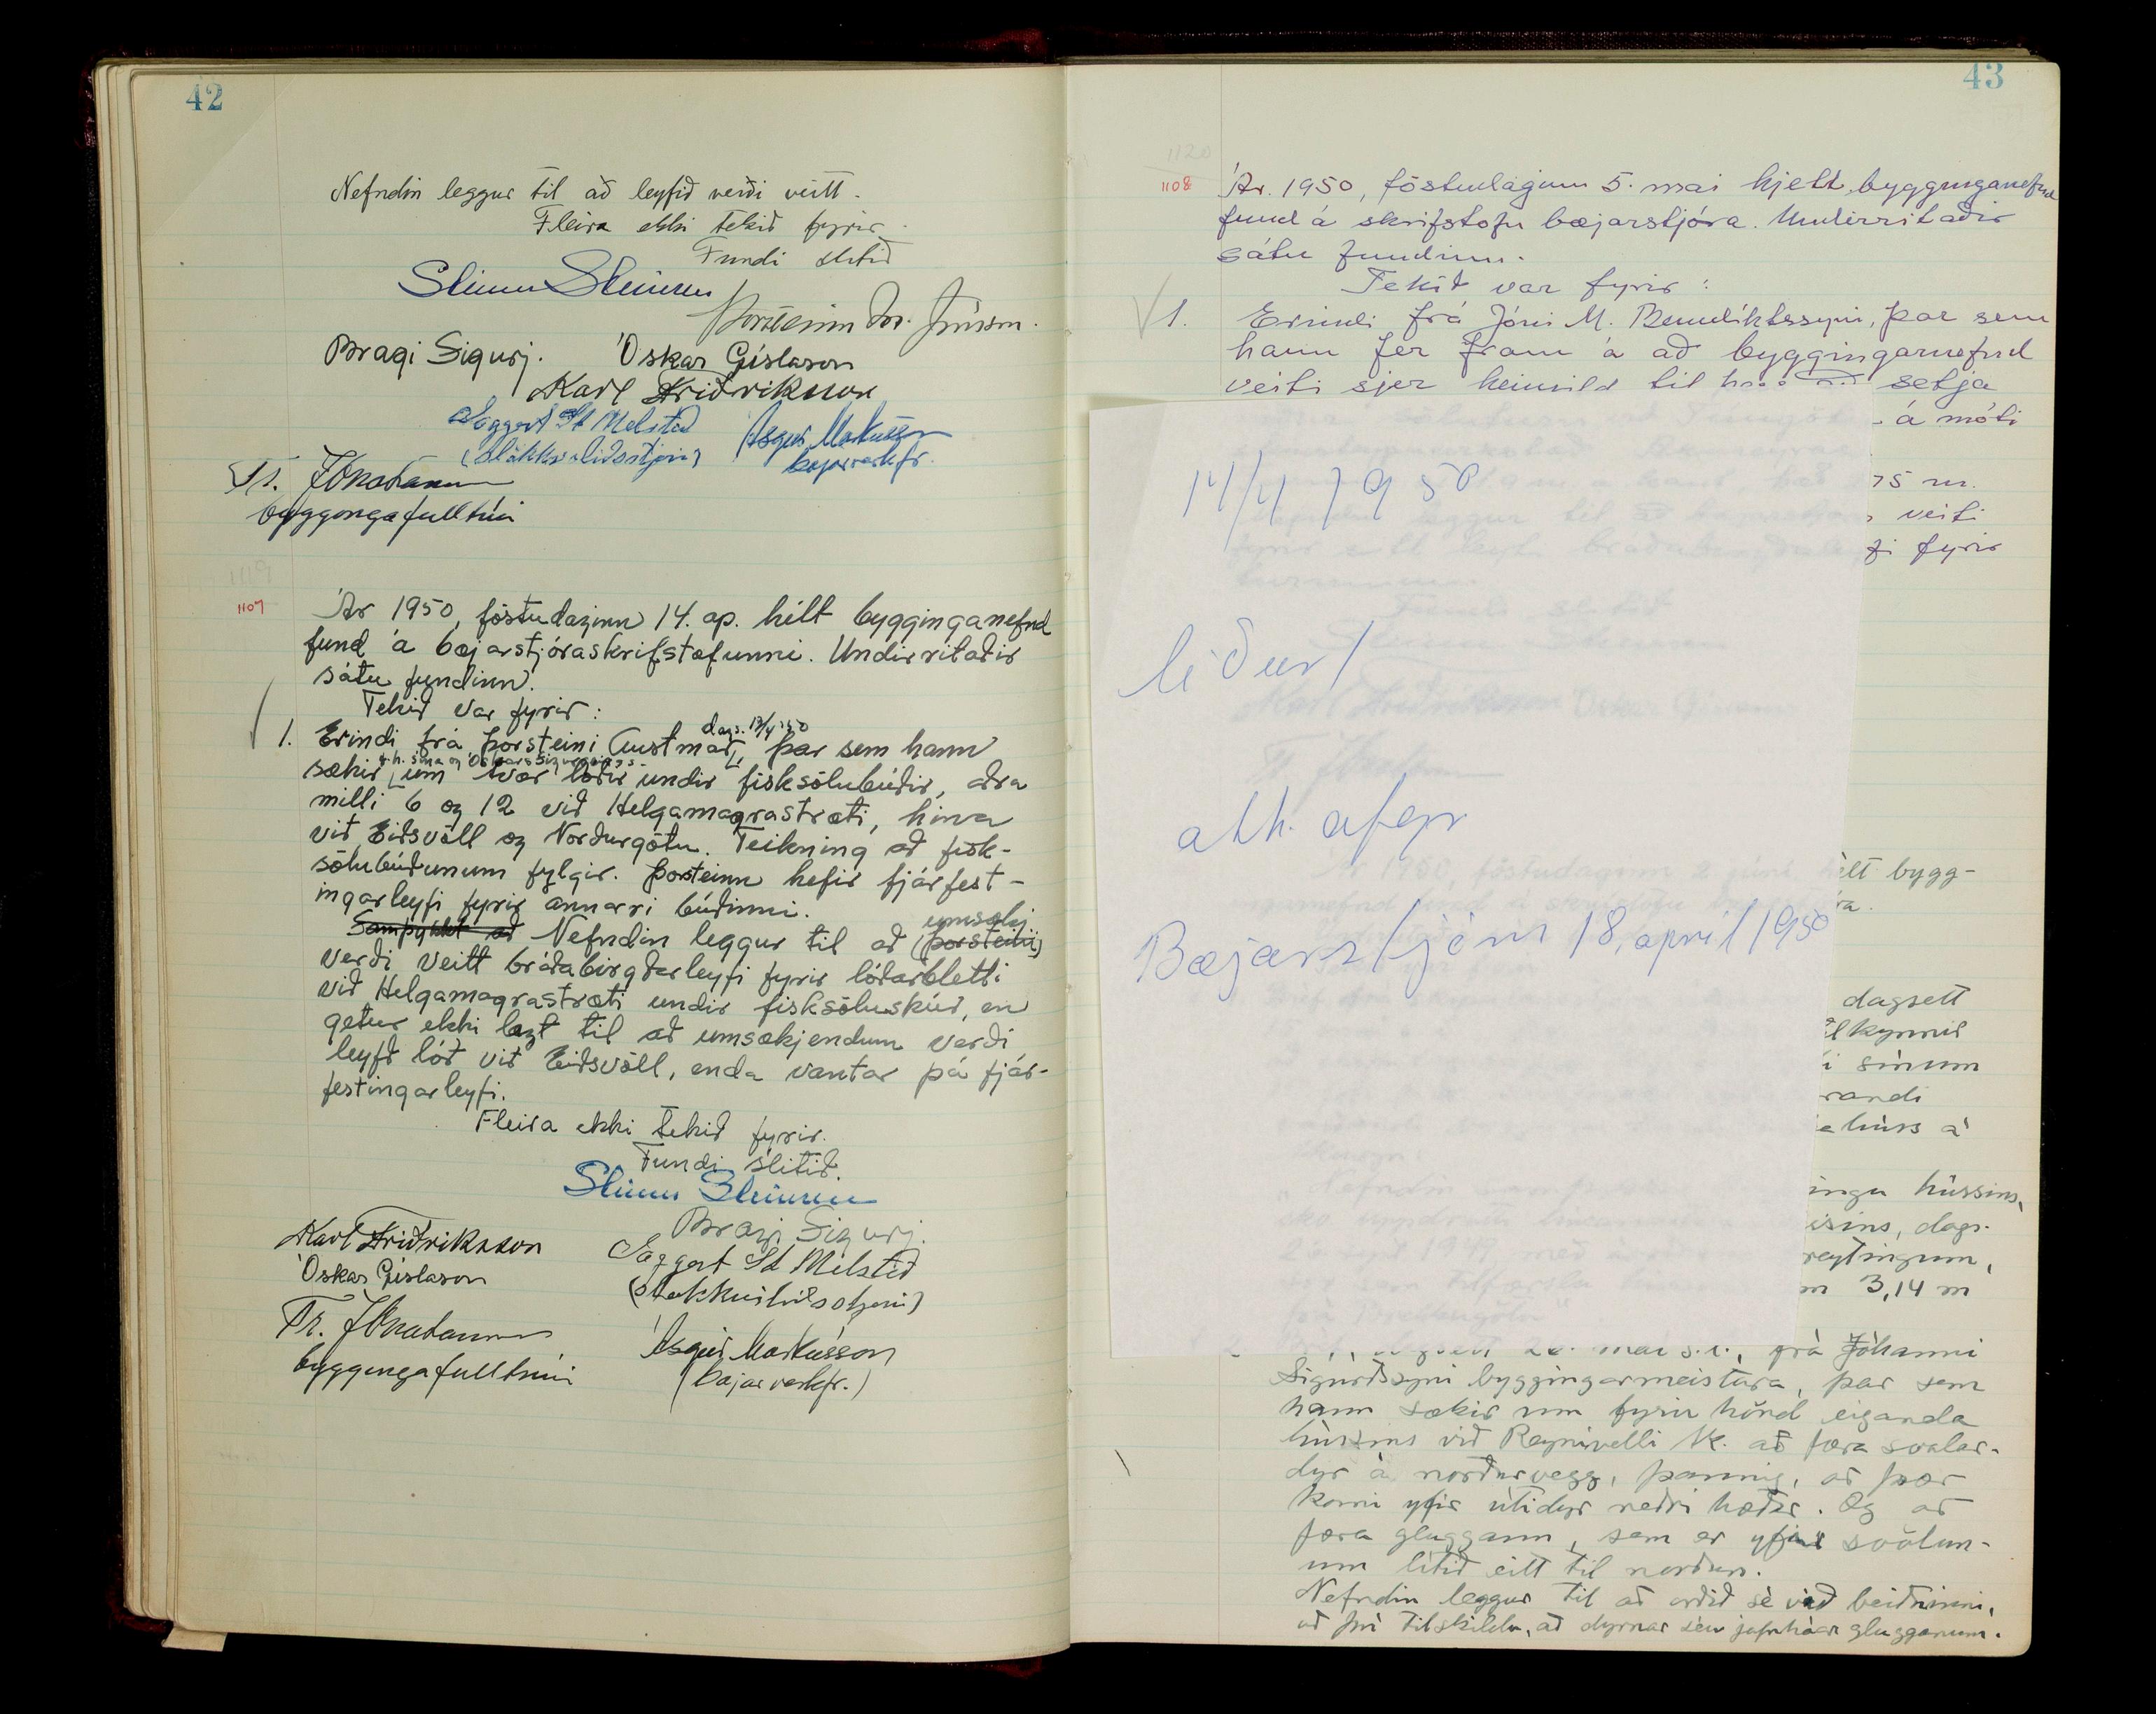 42
Nefndin leggur til að leyfið verði veitt.
Fleira ekki tekið fyrir.
Fundi slitið
Bragi Sigurj.
Óskar Gíslason
Karl Friðriksson
Eggert St Melstað
(slökkviliðsstjóri)
Ásgeir Markússon
bæjarverkfr.
Tr. Jónatansson
byggingafulltrúi
1119
1107
Ár 1950, föstudaginn 14. ap. hélt bygginganefnd
fund á bæjarstjóraskrifstofunni. Undirritaðir
sátu fundinn.
Tekið var fyrir:
dags. 13/4 '50
1. Erindi frá Þorsteini Austmar, þar sem hann
f.h. sína og Óskars Sigurgeirss.
sækir um tvær lóðir undir fisksölubúðir, aðra
milli 6 og 12 við Helgamagrastræti, hina
við Eiðsvöll og Norðurgötu. Teikning að fisk-
sölubúðunum fylgir. Þorsteinn hefir fjárfest-
ingarleyfi fyrir annarri búðinni.
umsækj
Samþykkt að Nefndin leggur til að (Þorsteini)
verði veitt bráðabirgðarleyfi fyrir lóðarbletti
við Helgamagrastræti undir fisksöluskúr, en
getur ekki lagt til að umsækjendum verði
leyfð lóð við Eiðsvöll, enda vantar þá fjár-
festingarleyfi.
Fleira ekki tekið fyrir.
Fundi slitið.
Karl Friðriksson
Bragi Sigurj.
Óskar Gíslason
Eggert St Melstað
(slökkviliðsstjóri)
Tr. Jónatansson
byggingafulltrúi
Ásgeir Markússon
(bæjarverkfr.)
43
1120
1108
Ár. 1950, föstudaginn 5. maí hjelt bygginganefnd
fund á skrifstofu bæjarstjóra. Undirritaðir
sátu fundinn.
Tekið var fyrir:
1. Erindi frá Jóni M. Benediktssyni, þar sem
hann fer fram á að byggingarnefnd
veiti sjer heimild til setja
á móti
75 m.
veiti
fyrir
14/4 1950
liður 1
ath. afgr
Bæjarstjórn 18, apríl 1950
élt bygg-
ra.
dagsett
lkynnir
i sínum
randi
húss á
ingu hússins,
isins, dags.
reytingum,
m 3,14 m
maí s.l., frá Jóhanni
Sigurðssyni byggingarmeistara, þar sem
hann sækir um fyrir hönd eiganda
hússins við Reynivelli 1k. að færa svalar-
dyr á norðurvegg, þannig, að þær
komi yfir útidyr neðri hæðar. Og að
færa gluggann, sem er yfir svölun-
um lítið eitt til norðurs.
Nefndin leggur til að orðið sé við beiðninni,
að því tilskildu, að dyrnar séu jafnháar glugganum.